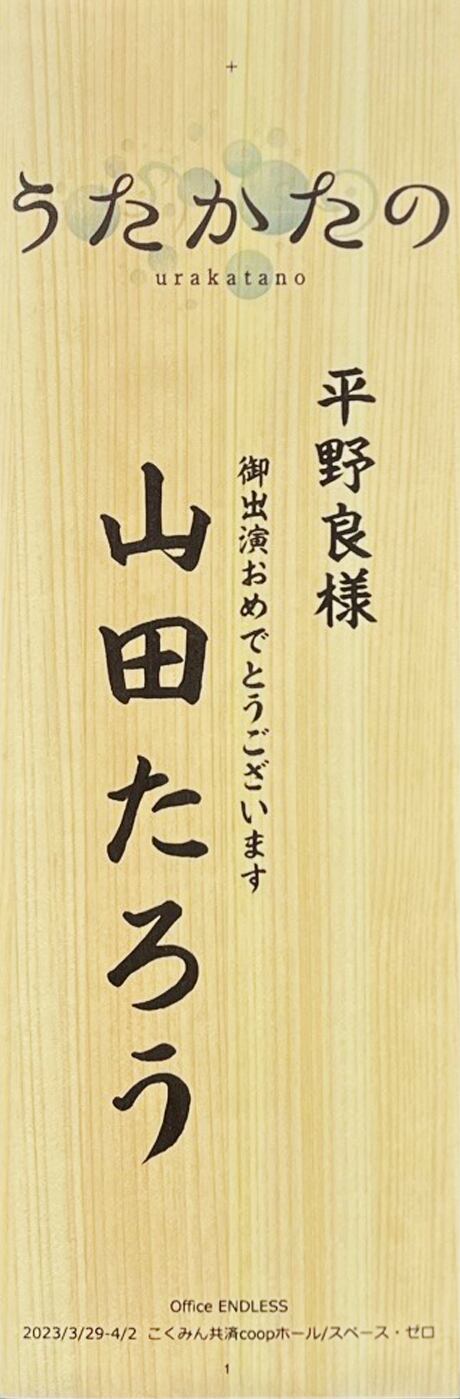 +
うたかたの
urakatano
平野良様
御出演おめでとうございます
山田たろう
Office ENDLESS
2023/3/29-4/2 こくみん共済coopホール/スペース・ゼロ
1